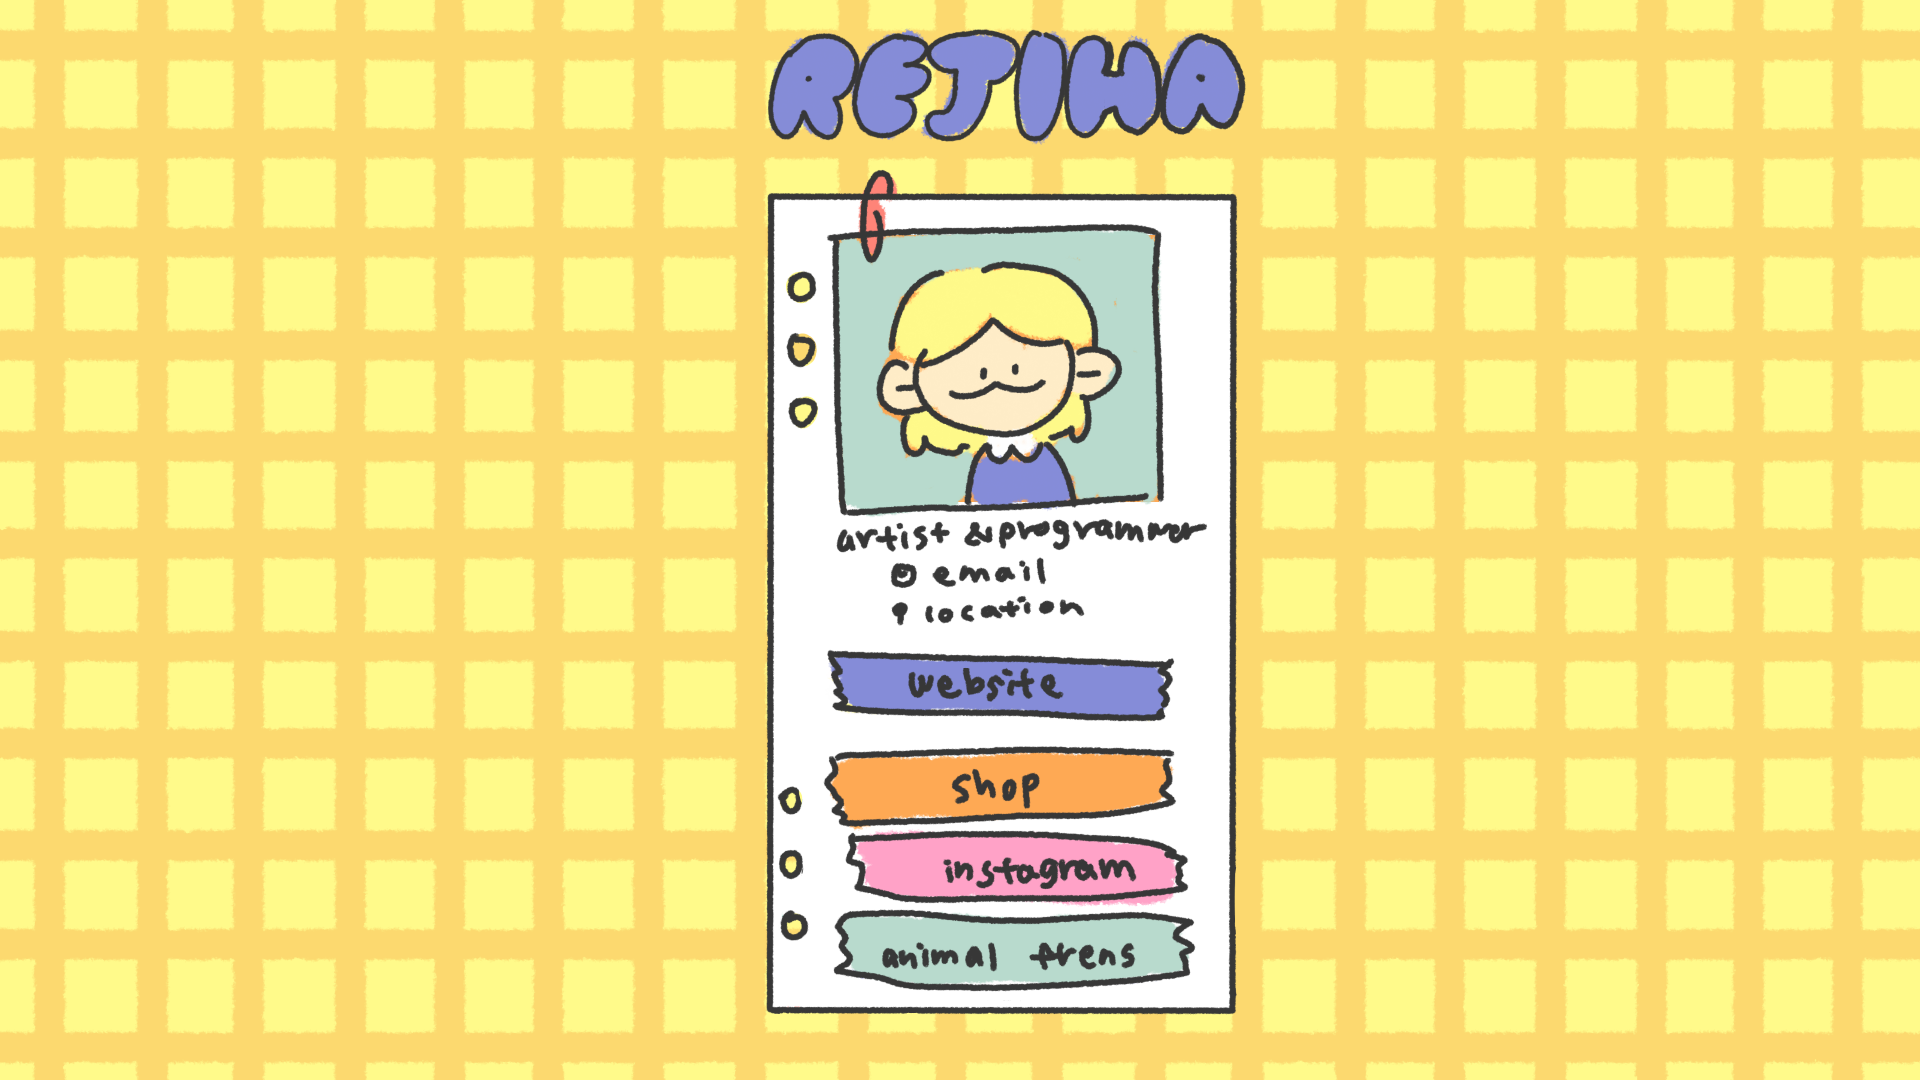 REJIHA
artist & programmer
email
location
website
shop
instagram
animal frens